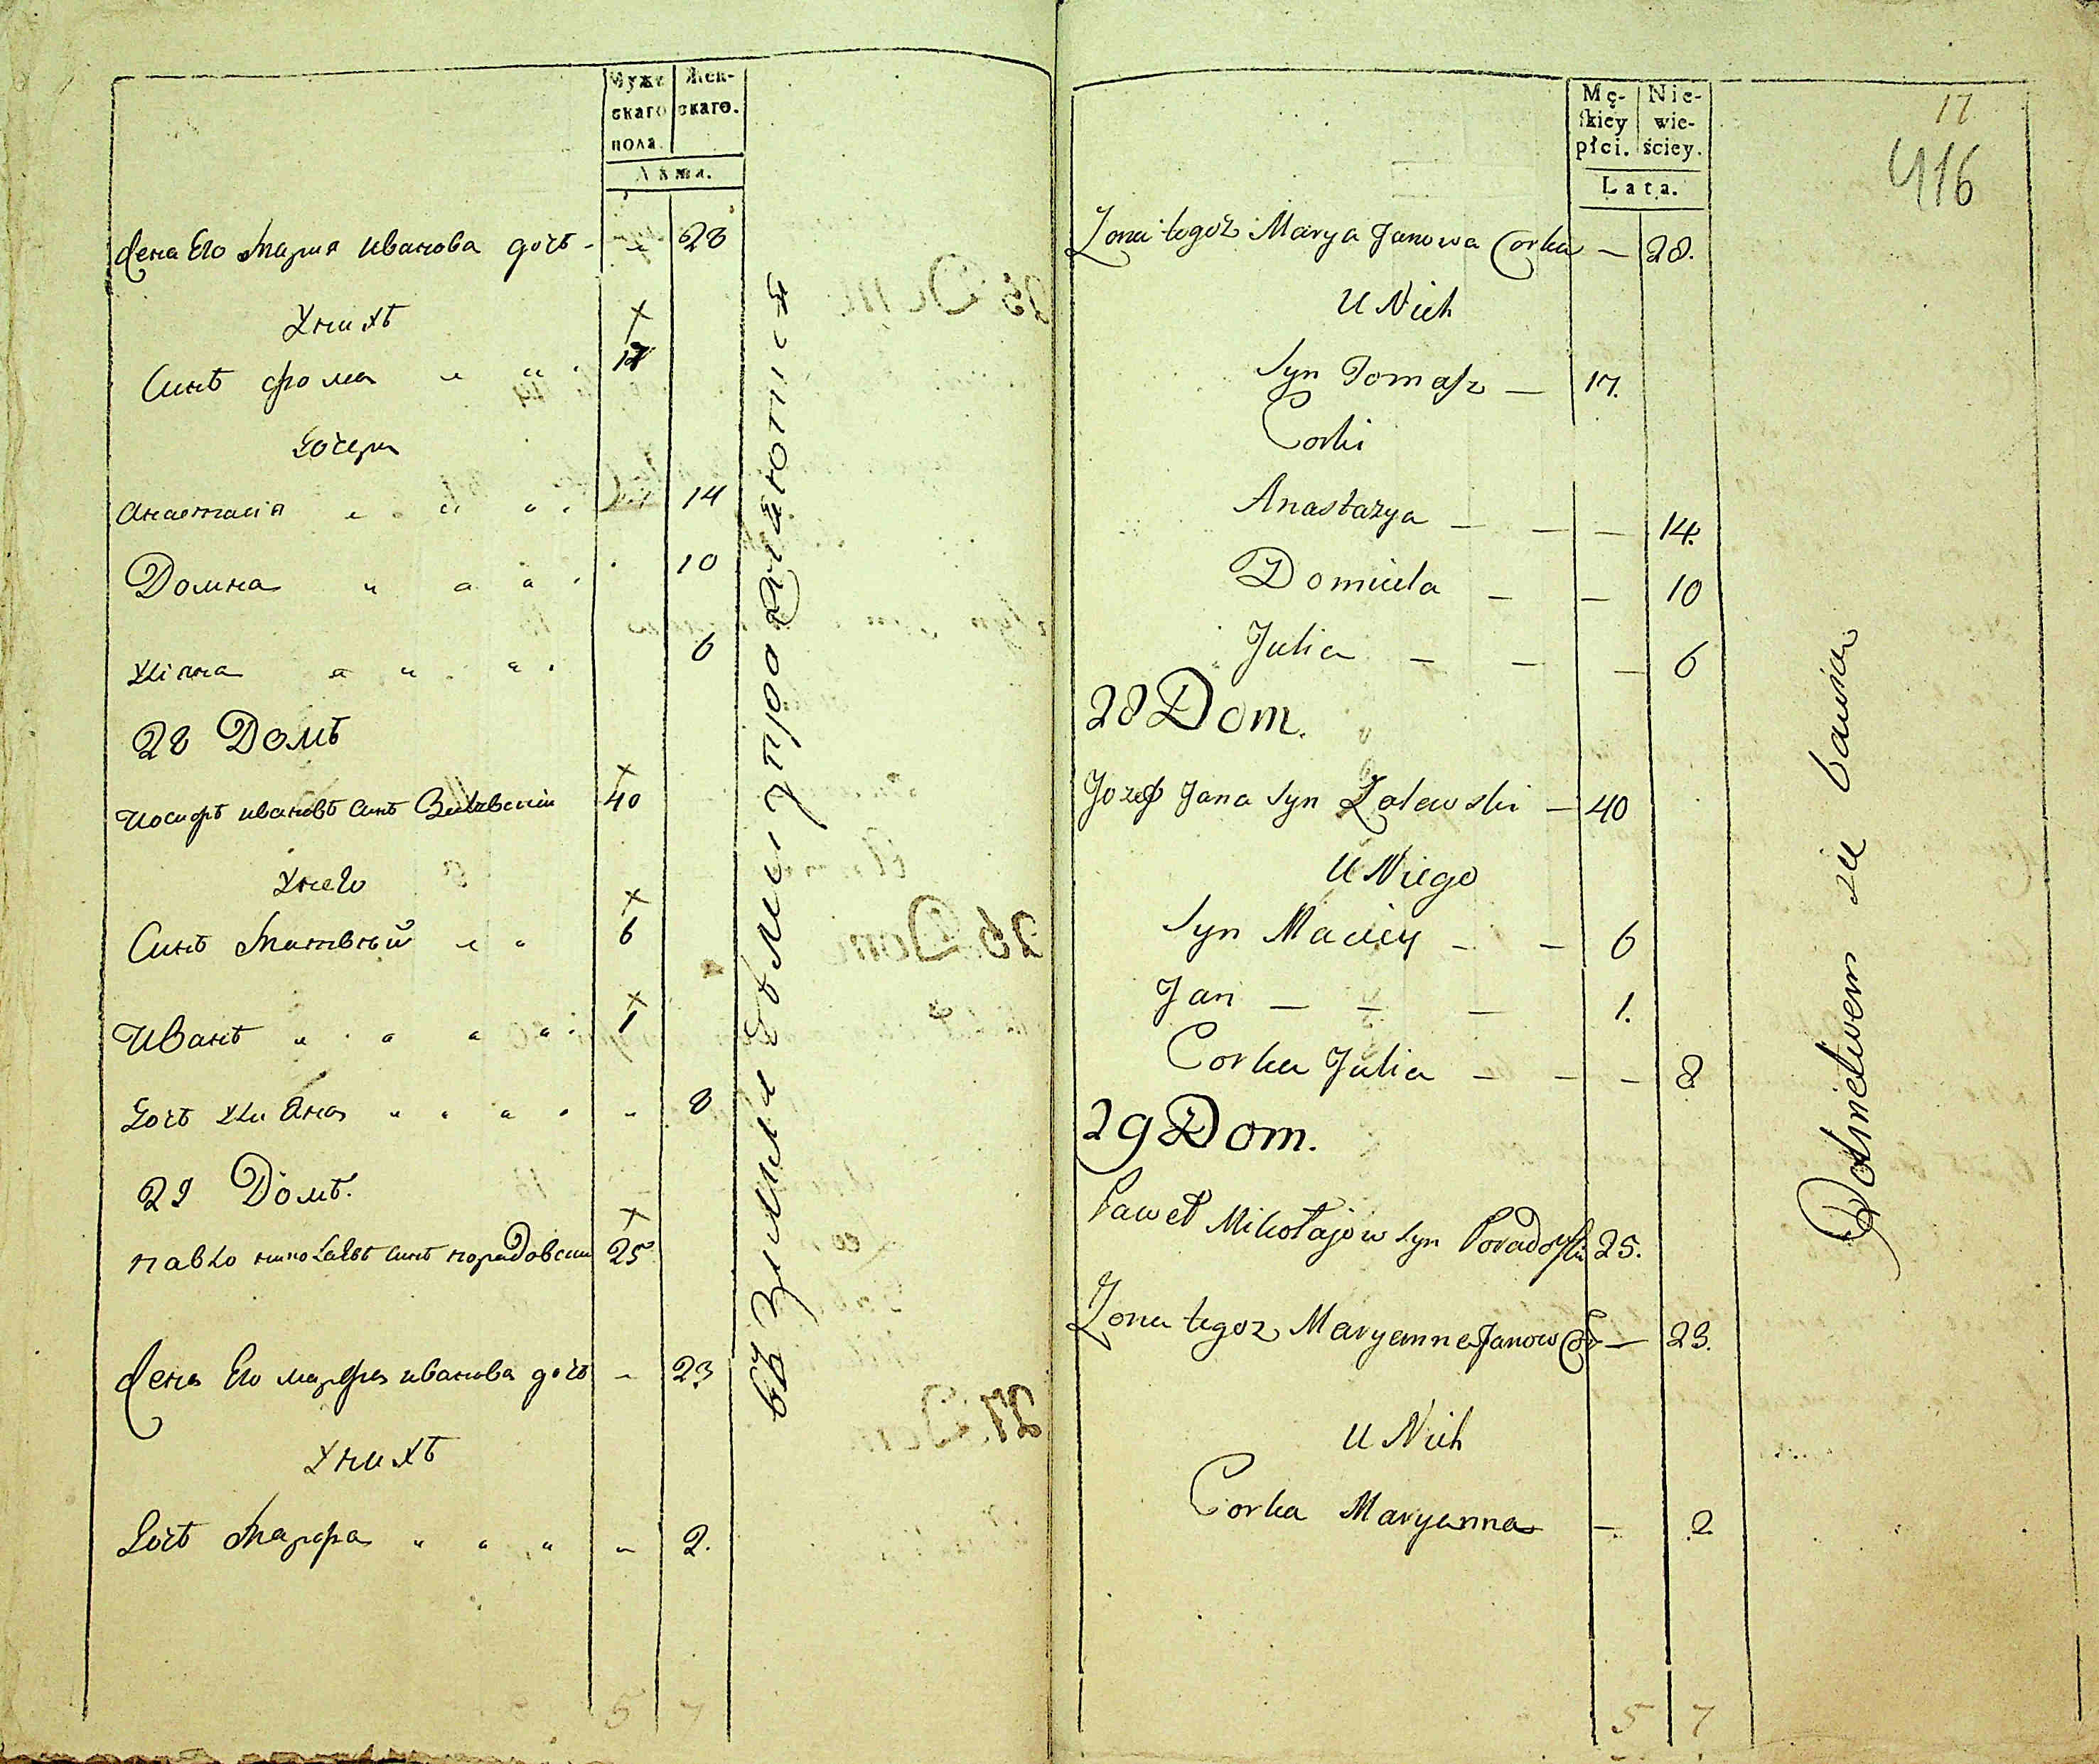 Мужескаго пола.
Женскаго.
Лѣта.
Жена Его Мария иванова дочь - 28
У нихъ
Синъ фома 17
Дочери
Анастасія 14
Домна 10
Уліяна 6
28 Домъ
иосифъ ивановъ синъ 40
У него
Синъ Матвѣй 6
Иванъ 1
Дочь Улияна 8
29 Домъ.
павло николаевъ синъ порадовский 25
Жена Его марфа иванова дочь - 23
У нихъ
Дочь Марфа 2.
5 7
Męskiey płci.
Niewieściey.
Lata.
17
416
Zona tegoż Marya Janowa Corka — 28.
U Nich
Syn Tomasz — 17.
Corki
Anastazya — — — 14.
Domicela — — 10
Julia — — — 6
28 Dom.
Jozef Jana Syn Zalewski — 40
U Niego
Syn Maciey — — 6
Jan — — — 1.
Corka Julia — — — 8
29 Dom.
Paweł Mikołajow Syn Poradowski 25.
Zona tegoz Maryanna Janow Cor — 23.
U Nich
Corka Maryanna — 2
5 7